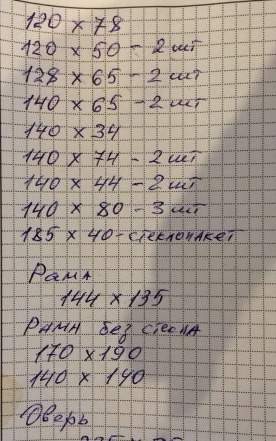 120 × 78
120 × 50 - 2 шт
128 × 65 - 2 шт
140 × 65 - 2 шт
140 × 34
140 × 74 - 2 шт
140 × 44 - 2 шт
140 × 80 - 3 шт
185 × 40 - стеклопакет
Рама
144 × 135
Рама без стекла
170 × 190
140 × 190
Дверь